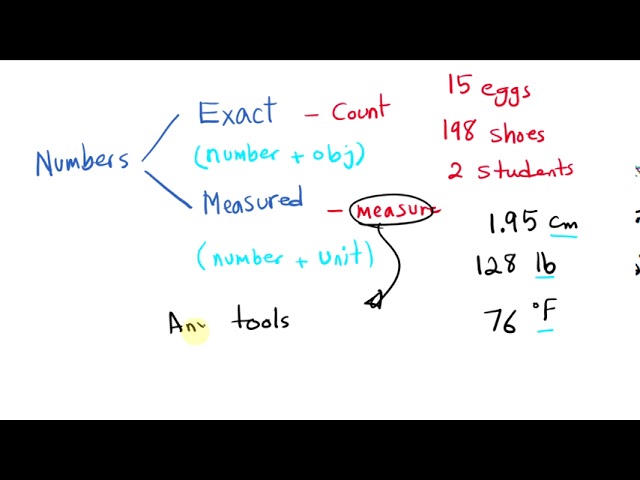 Numbers
Exact - Count
(number + obj)
Measured - measure
(number + unit)
15 eggs
198 shoes
2 students
1.95 cm
128 lb
76 °F
tools